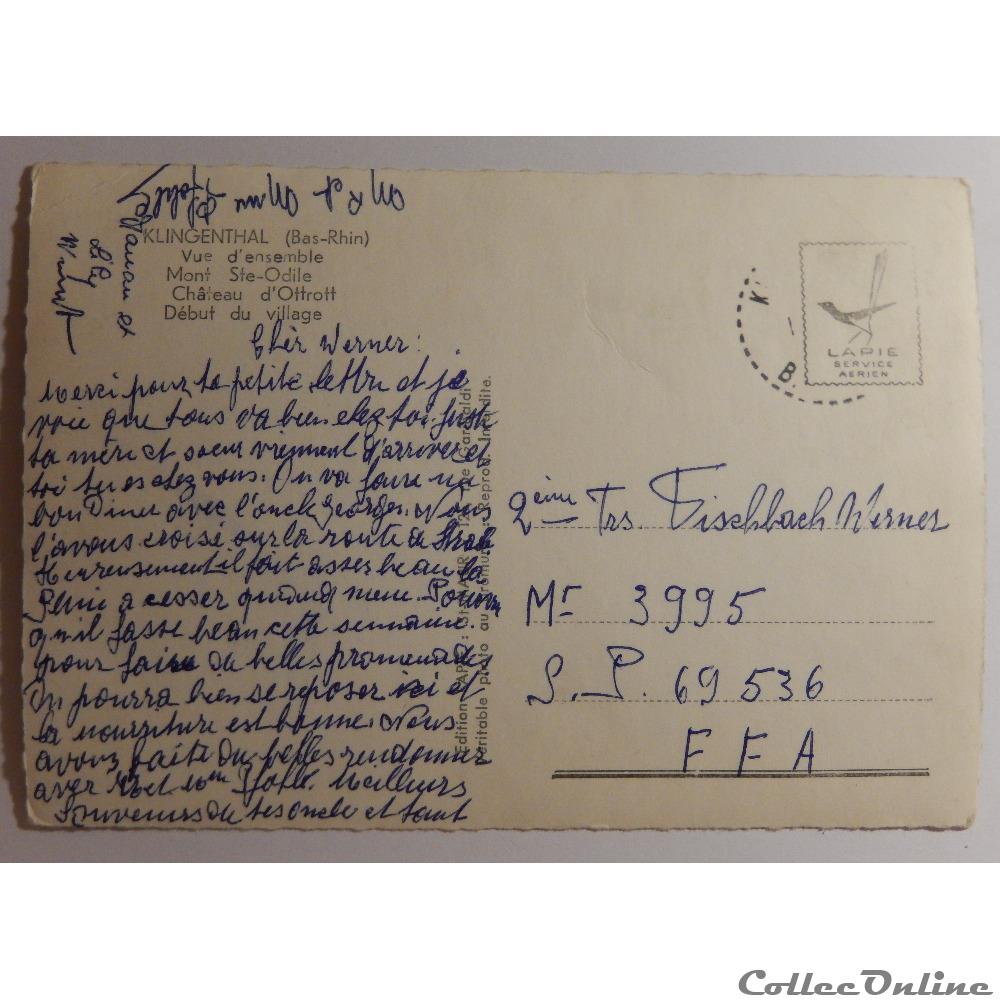 KLINGENTHAL (Bas-Rhin)
Vue d'ensemble
Mont Ste-Odile
Château d'Ottrott
Début du village
Cher Werner :
Merci pour ta petite lettre et je
voie que tous va bien chez toi. Juste
ta mère et soeur viennent d'arriver et
toi tu es chez vous. On va faire un
bon diner avec l'oncle Georges. Nous
l'avons croisé sur la route de Strasb
Heureusement il fait asser beau la
pluie a cesser quand meme. Pourvu
qu'il fasse beau cette semaine.
pour faire de belles promenades
On pourra bien se reposer ici et
la nourriture est bonne. Nous
avons faite de belles
avec Mr et Mme Meilleurs
Souvenirs de tes oncle et tant
Mr et Mme
et
Lily
K
B.
LAPIE
SERVICE
AERIEN
2ème Trs. Fischbach Werner
Mr 3995
S. P. 69 536
F F A
Editions LAPIE : St-MAUR
Véritable photo au bromure - Reprod. Interdite.
CollecOnline